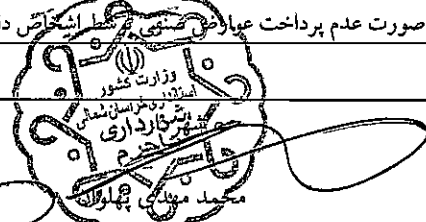 صورت عدم پرداخت عوارض صنفی توسط اشخاص
وزارت کشور
استانداری خراسان شمالی
شهرداری
محمد مهدی پهلوان